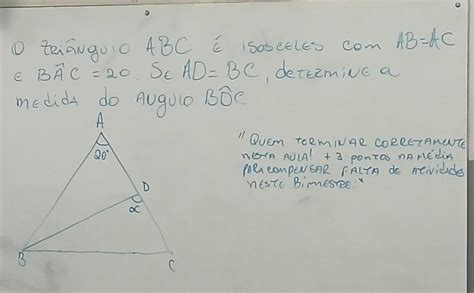 O triângulo ABC é isosceles com AB=AC
e BÂC = 20. Se AD = BC, determine a
medida do Angulo BD̂C
A
20°
D
α
B
C
"Quem terminar corretamente
nesta aula! +3 pontos na média
para compensar falta de atividades
neste Bimestre."